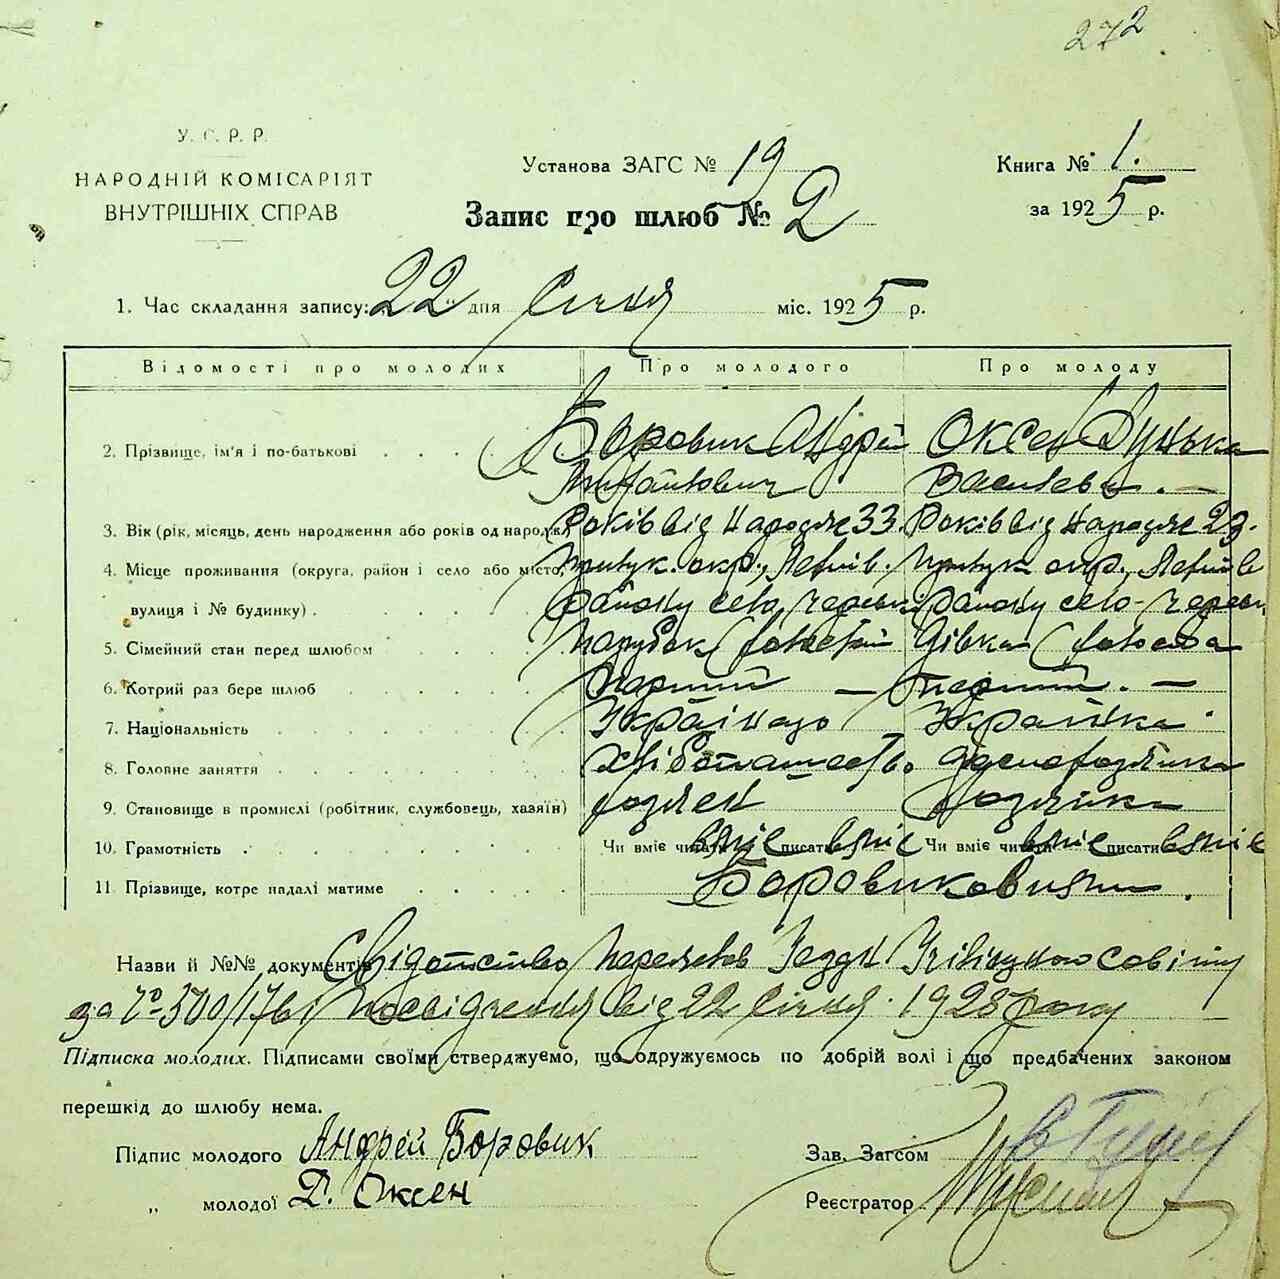 272
У.С.Р.Р.
НАРОДНІЙ КОМІСАРІЯТ
ВНУТРІШНІХ СПРАВ
Установа ЗАГС № 19
Запис про шлюб № 2
Книга № 1.
за 1925 р.
1. Час складання запису: 22 " дня Січня міс. 1925 р.
Відомості про молодих Про молодого Про молоду
2. Прізвище, ім'я і по-батькові Боровик Андрій Оксен Дунька
Михайлович Василева. —
3. Вік (рік, місяць, день народження або років од народж.) Років від народже 33. Років від народже 23.
4. Місце проживання (округа, район і село або місто, Прилук. окр., Прилук окр.,
вулиця і № будинку) району село району село
5. Сімейний стан перед шлюбом Парубок Дівка
6. Котрий раз бере шлюб Перший — перший. —
7. Національність Українець Українка
8. Головне заняття Хліборобство домогосподарка
9. Становище в промислі (робітник, службовець, хазяїн)
10. Грамотність Чи вміє читати вміє писати вміє Чи вміє читати вміє писати вміє
11. Прізвище, котре надалі матиме Боровиковими.
Назви й №№ документів Свідотство
за № 500/1761 посвідчення від 22 Січня 1925 року
Підписка молодих. Підписами своїми стверджуємо, що одружуємось по добрій волі і що предбачених законом
перешкід до шлюбу нема.
Підпис молодого Андрей Боровик
Зав. Загсом
" молодої Д. Оксен
Реєстратор